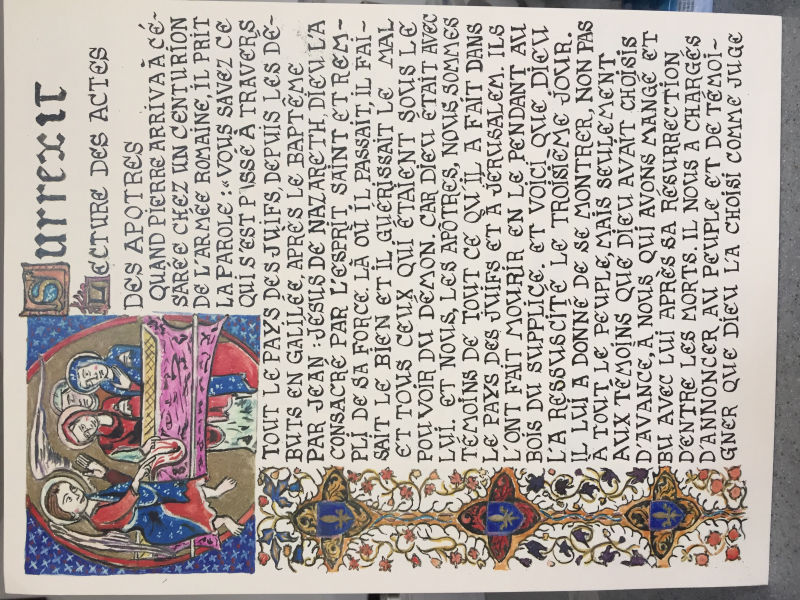 Surrexit
LECTURE DES ACTES
DES APOTRES
QUAND PIERRE ARRIVA À CÉ-
SARÉE CHEZ UN CENTURION
DE L'ARMÉE ROMAINE, IL PRIT
LA PAROLE : « VOUS SAVEZ CE
QUI S'EST PASSÉ À TRAVERS
TOUT LE PAYS DES JUIFS, DEPUIS LES DÉ-
BUTS EN GALILÉE, APRÈS LE BAPTÊME
PAR JEAN : JÉSUS DE NAZARETH, DIEU L'A
CONSACRÉ PAR L'ESPRIT SAINT ET REM-
PLI DE SA FORCE. LÀ OÙ IL PASSAIT, IL FAI-
SAIT LE BIEN ET IL GUÉRISSAIT LE MAL
ET TOUS CEUX QUI ÉTAIENT SOUS LE
POUVOIR DU DÉMON. CAR DIEU ÉTAIT AVEC
LUI. ET NOUS, LES APÔTRES, NOUS SOMMES
TÉMOINS DE TOUT CE QU'IL A FAIT DANS
LE PAYS DES JUIFS ET À JÉRUSALEM. ILS
L'ONT FAIT MOURIR EN LE PENDANT AU
BOIS DU SUPPLICE. ET VOICI QUE DIEU
L'A RESSUSCITÉ LE TROISIÈME JOUR.
IL LUI A DONNÉ DE SE MONTRER, NON PAS
À TOUT LE PEUPLE, MAIS SEULEMENT
AUX TEMOINS QUE DIEU AVAIT CHOISIS
D'AVANCE, À NOUS QUI AVONS MANGÉ ET
BU AVEC LUI APRÈS SA RESURRECTION
D'ENTRE LES MORTS. IL NOUS A CHARGÉS
D'ANNONCER AU PEUPLE ET DE TÉMOI-
GNER QUE DIEU L'A CHOISI COMME JUGE